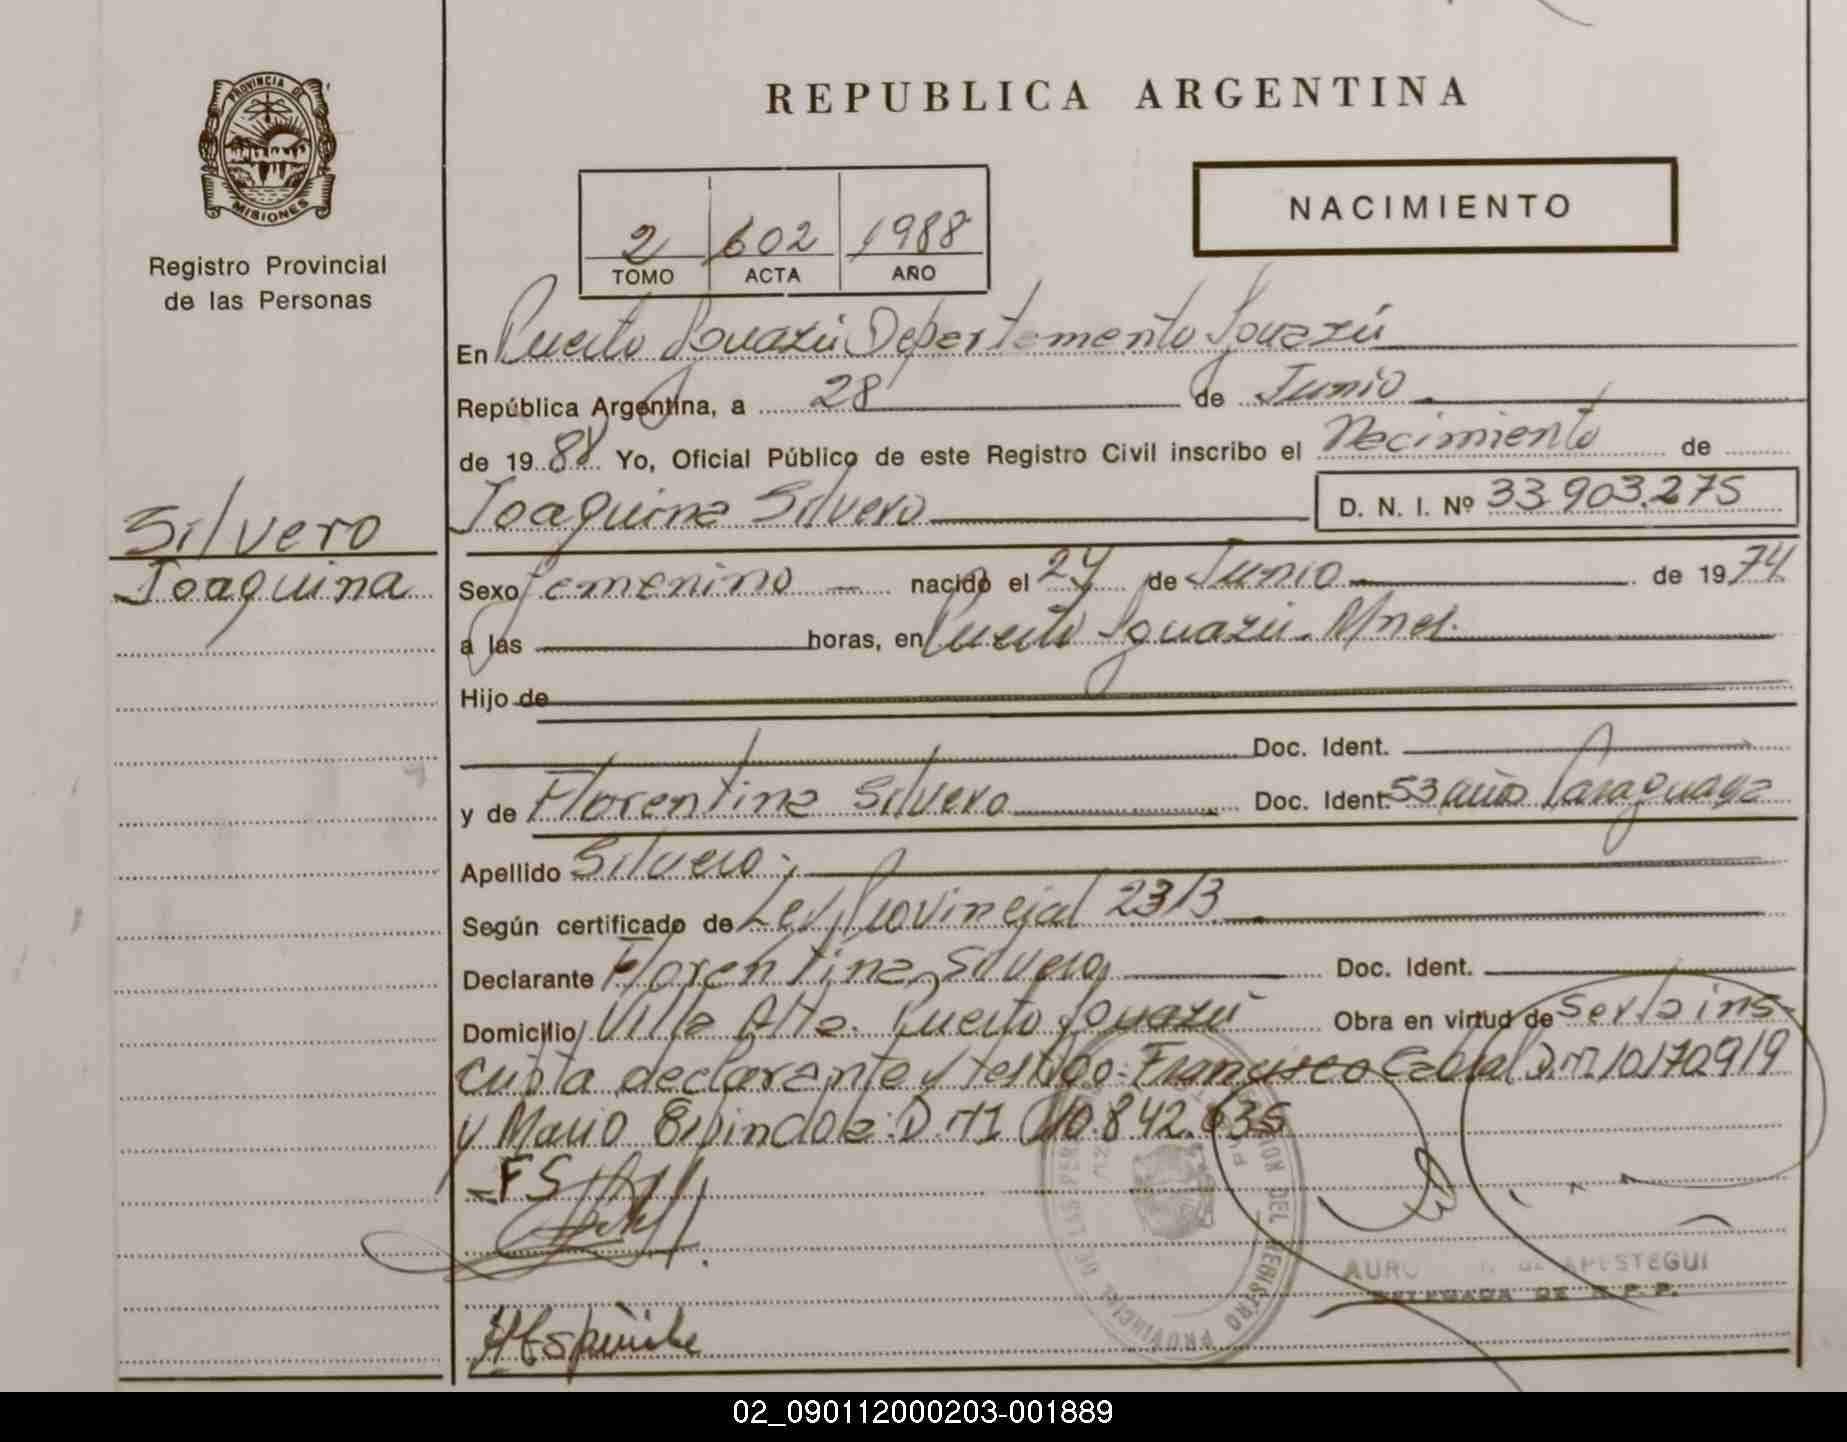 PROVINCIA DE
MISIONES
Registro Provincial
de las Personas
Silvero
Joaquina
REPUBLICA ARGENTINA
NACIMIENTO
2 602 1988
TOMO ACTA AÑO
En Puerto Iguazú Departamento Iguazú
República Argentina, a 28 de Junio
de 1988 Yo, Oficial Público de este Registro Civil inscribo el Nacimiento de
Joaquina Silvero D. N. I. Nº 33.903.275
Sexo femenino nacido el 24 de Junio de 1974
a las horas, en Puerto Iguazú. Mnes.
Hijo de
Doc. Ident.
y de Florentina Silvero Doc. Ident. 53 años Paraguaya
Apellido Silvero
Según certificado de Ley Provincial 2313
Declarante Florentina Silvero Doc. Ident.
Domicilio Villa Alta. Puerto Iguazú Obra en virtud de ser la ins-
cripta declarante y testigo: Francisco Cabral D.M.I 10170919
y Mario Espindola: D.M.I 10.842.635
F S
APESTEGUI
DELEGADA DE R.P.P.
02_090112000203-001889